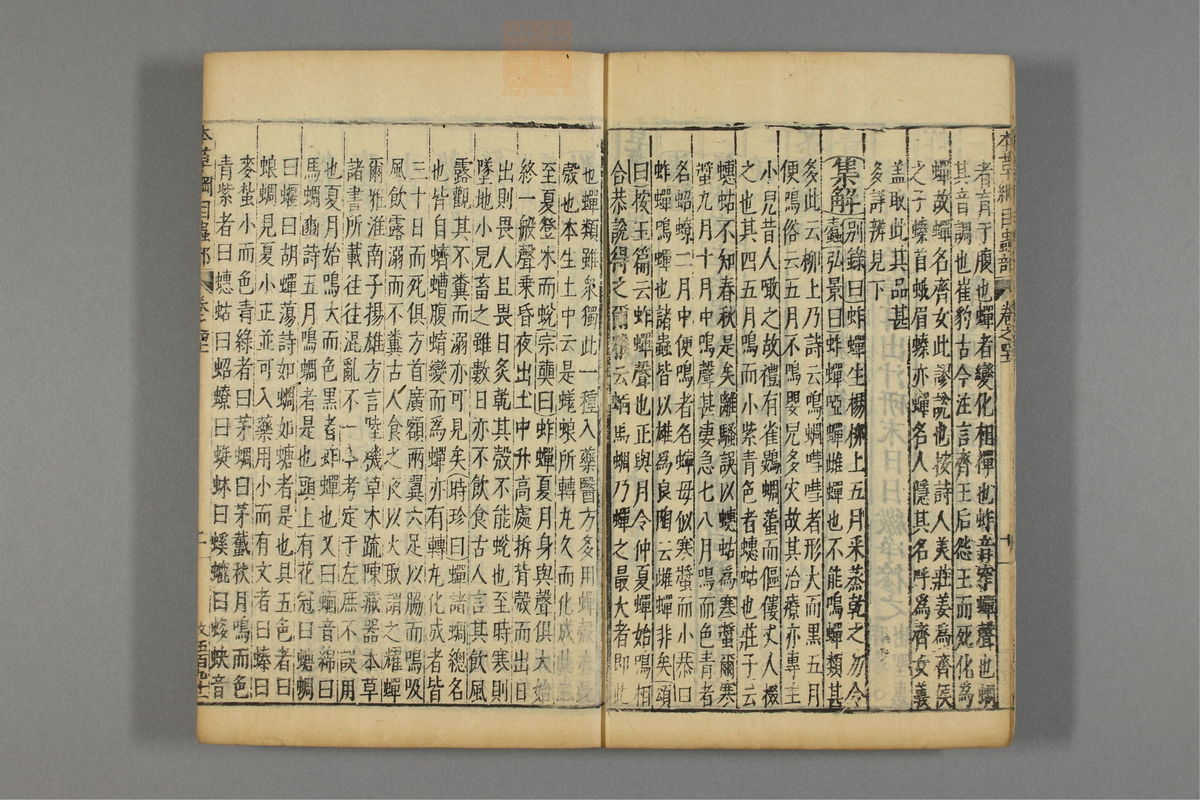 者育于腹也蟬者變化相禪也蚱音窄蟬聲也蜩
其音調也崔豹古今注言齊王后怨王而死化為
蟬故蟬名齊女此謬說也按詩人美莊姜為齊矦
之子螓首蛾眉螓亦蟬名人隱其名呼為齊女義
盖取此此其品甚
多詳辨見下
集解別錄曰蚱蟬生楊栁上五月采蒸乾之勿令
蠧弘景曰蚱蟬啞蟬雌蟬也不能鳴蟬類甚
多此云栁上乃詩云鳴蜩嘒嘒者形大而黒五月
便鳴俗云五月不鳴嬰兒多灾故其治療亦專主
小兒昔人噉之故禮有雀鷃蜩范而傴僂丈人掇
之也其四五月鳴而小紫青色者蟪蛄也莊子云
蟪蛄不知春秋是矣離騷誤以蟪蛄為寒螀爾寒
螀九月十月中鳴聲甚凄急七八月鳴而色青者
名蛁蟟二月中便鳴者名蟀母似寒螀而小恭曰
蚱蟬鳴蟬也諸蟲皆以雄為良陶云雌蟬非矣頌
曰按玉篇云蚱蟬聲也正與月令仲夏蟬始鳴相
合恭說得之爾雅云蝒馬蜩乃蟬之最大者即此
也蟬類雖衆獨此一種入藥醫方多用蟬殻
殻也本生土中云是蜣蜋所轉丸久而化成
至夏登木而蛻宗奭曰蚱蟬夏月身與聲俱大始
終一般聲乗昏夜出土中升高處拆背殻而出日
出則畏人且畏日炙乾其殻不能蛻也至時寒則
墜地小兒畜之雖數日亦不飲食古人言其飲風
露觀其不糞而溺亦可見矣時珍曰蟬諸蜩總名
也皆自蠐螬腹蜟變而為蟬亦有轉丸化成者皆
三十日而死俱方首廣額兩翼六足以脇而鳴吸
風飲露溺而不糞古人食之夜以火取謂之耀蟬
爾雅淮南子揚雄方言陸機草木疏陳藏器本草
諸書所載往往混亂不一今考定于左庶不誤用
也夏月始鳴大而色黒者蚱蟬也又曰蝒音綿曰
馬蜩豳詩五月鳴蜩者是也頭上有花冠曰螗蜩
曰蝘曰胡蟬蕩詩如蜩如螗者是也具五色者曰
蜋蜩見夏小正並可入藥用小而有文者曰螓曰
麥蚻小而色青綠者曰茅蜩曰茅蠽秋月鳴而色
青紫者曰蟪蛄曰蛁蟟曰蜓蚞曰螇螰曰蛥蚗音